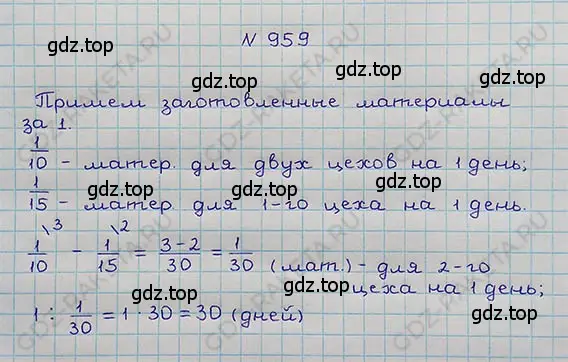 № 959
gdz.top gdz.top
gdz.top
Примем заготовленные материалы
за 1.
gdz.top gdz.top
1/10 - матер. для двух цехов на 1 день;
gdz.top gdz.top
1/15 - матер. для 1-го цеха на 1 день.
\3 \2
1/10 - 1/15 = 3-2/30 = 1/30 (мат.) - для 2-го
gdz.top gdz.top
цеха на 1 день;
1 : 1/30 = 1 · 30 = 30 (дней)
gdz.top gdz.top
GDZ-RAKETA.RU